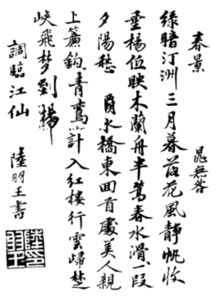 春景 晁無咎
綠暗汀洲三月暮落花風靜帆收
垂楊低映木蘭舟半篙春水滑一段
夕陽愁 灞水橋東回首處美人親
上簾鉤青鸞無計入紅樓行雲歸楚
峽飛夢到楊
調臨江仙 陸羽王書